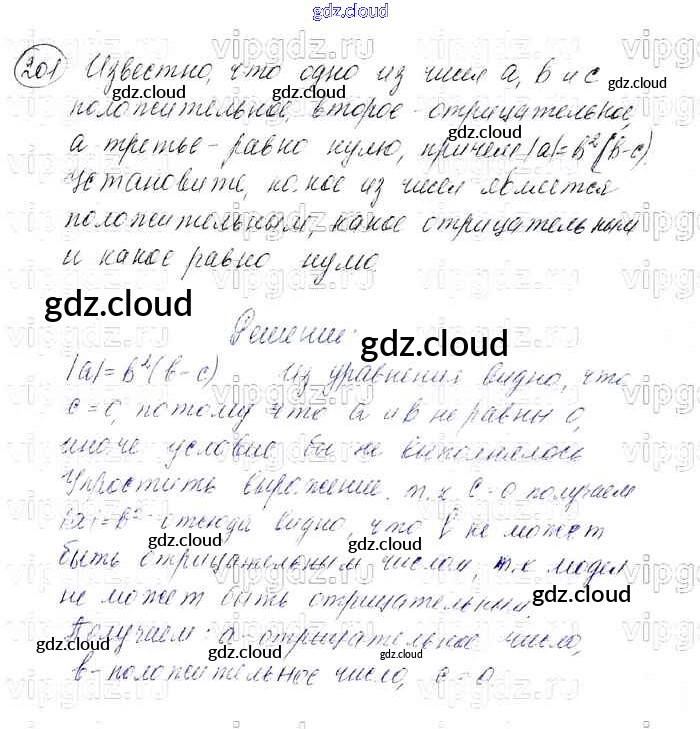 gdz.cloud
201 Известно, что одно из чисел a, b и c
положительное, второе - отрицательное,
а третье - равно нулю, причем |a|=b²(b-c).
установите, какое из чисел является
положительным, какое отрицательным
и какое равно нулю.
Решение:
|a|=b²(b-c) Из уравнения видно, что
c=0, потому что a и b не равны 0,
иначе условие бы не выполнялось
Упростить выражение. т.к c=0 получаем
|a|=b² отсюда видно, что b не может
быть отрицательным числом, т.к модель
не может быть отрицательным.
Получаем: a-отрицательное число,
b-положительное число, c=0